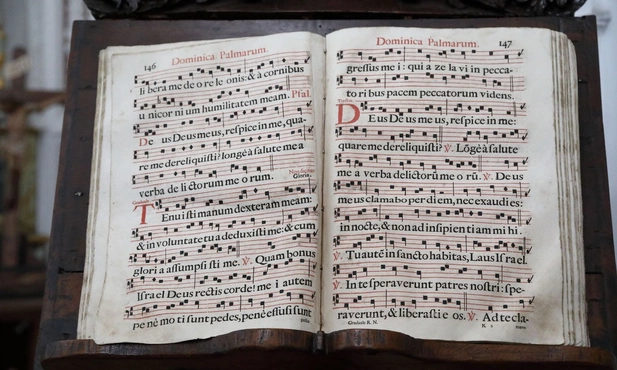 146
Dominica Palmarum.
li bera me de o re le onis: & à cornibus
u nicor ni um humilitatem meam. Psal.
De us Deus meus, respice in me, qua-
re me dereliquisti? longè à salute mea
verba de li ctorum me o rum.
Gloria.
Graduale
Tenui sti manum dexteram meam:
& in voluntate tua deduxisti me: & cum
glori a assumpsi sti me. ℣. Quam bonus
Israel Deus rectis corde! me i autem
pe nè mo ti sunt pedes, penè effusi sunt
Graduale R. N.
Dominica Palmarum.
147
gressus me i: qui a ze la vi in pecca-
to ri bus pacem peccatorum videns.
Tractus
DEus De us me us, respice in me:
quare me dereliquisti? ℣. Lõgè à salute
me a verba delictorũ me o rũ. ℣. De us
meus clamabo per diem, nec exaudies:
in nocte, & non ad insipien ti am mi hi.
℣. Tu autẽ in sancto habitas, Laus Israel.
℣. In te speraverunt patres nostri: spe-
raverunt, & liberasti e os. ℣. Ad te cla-
K 2